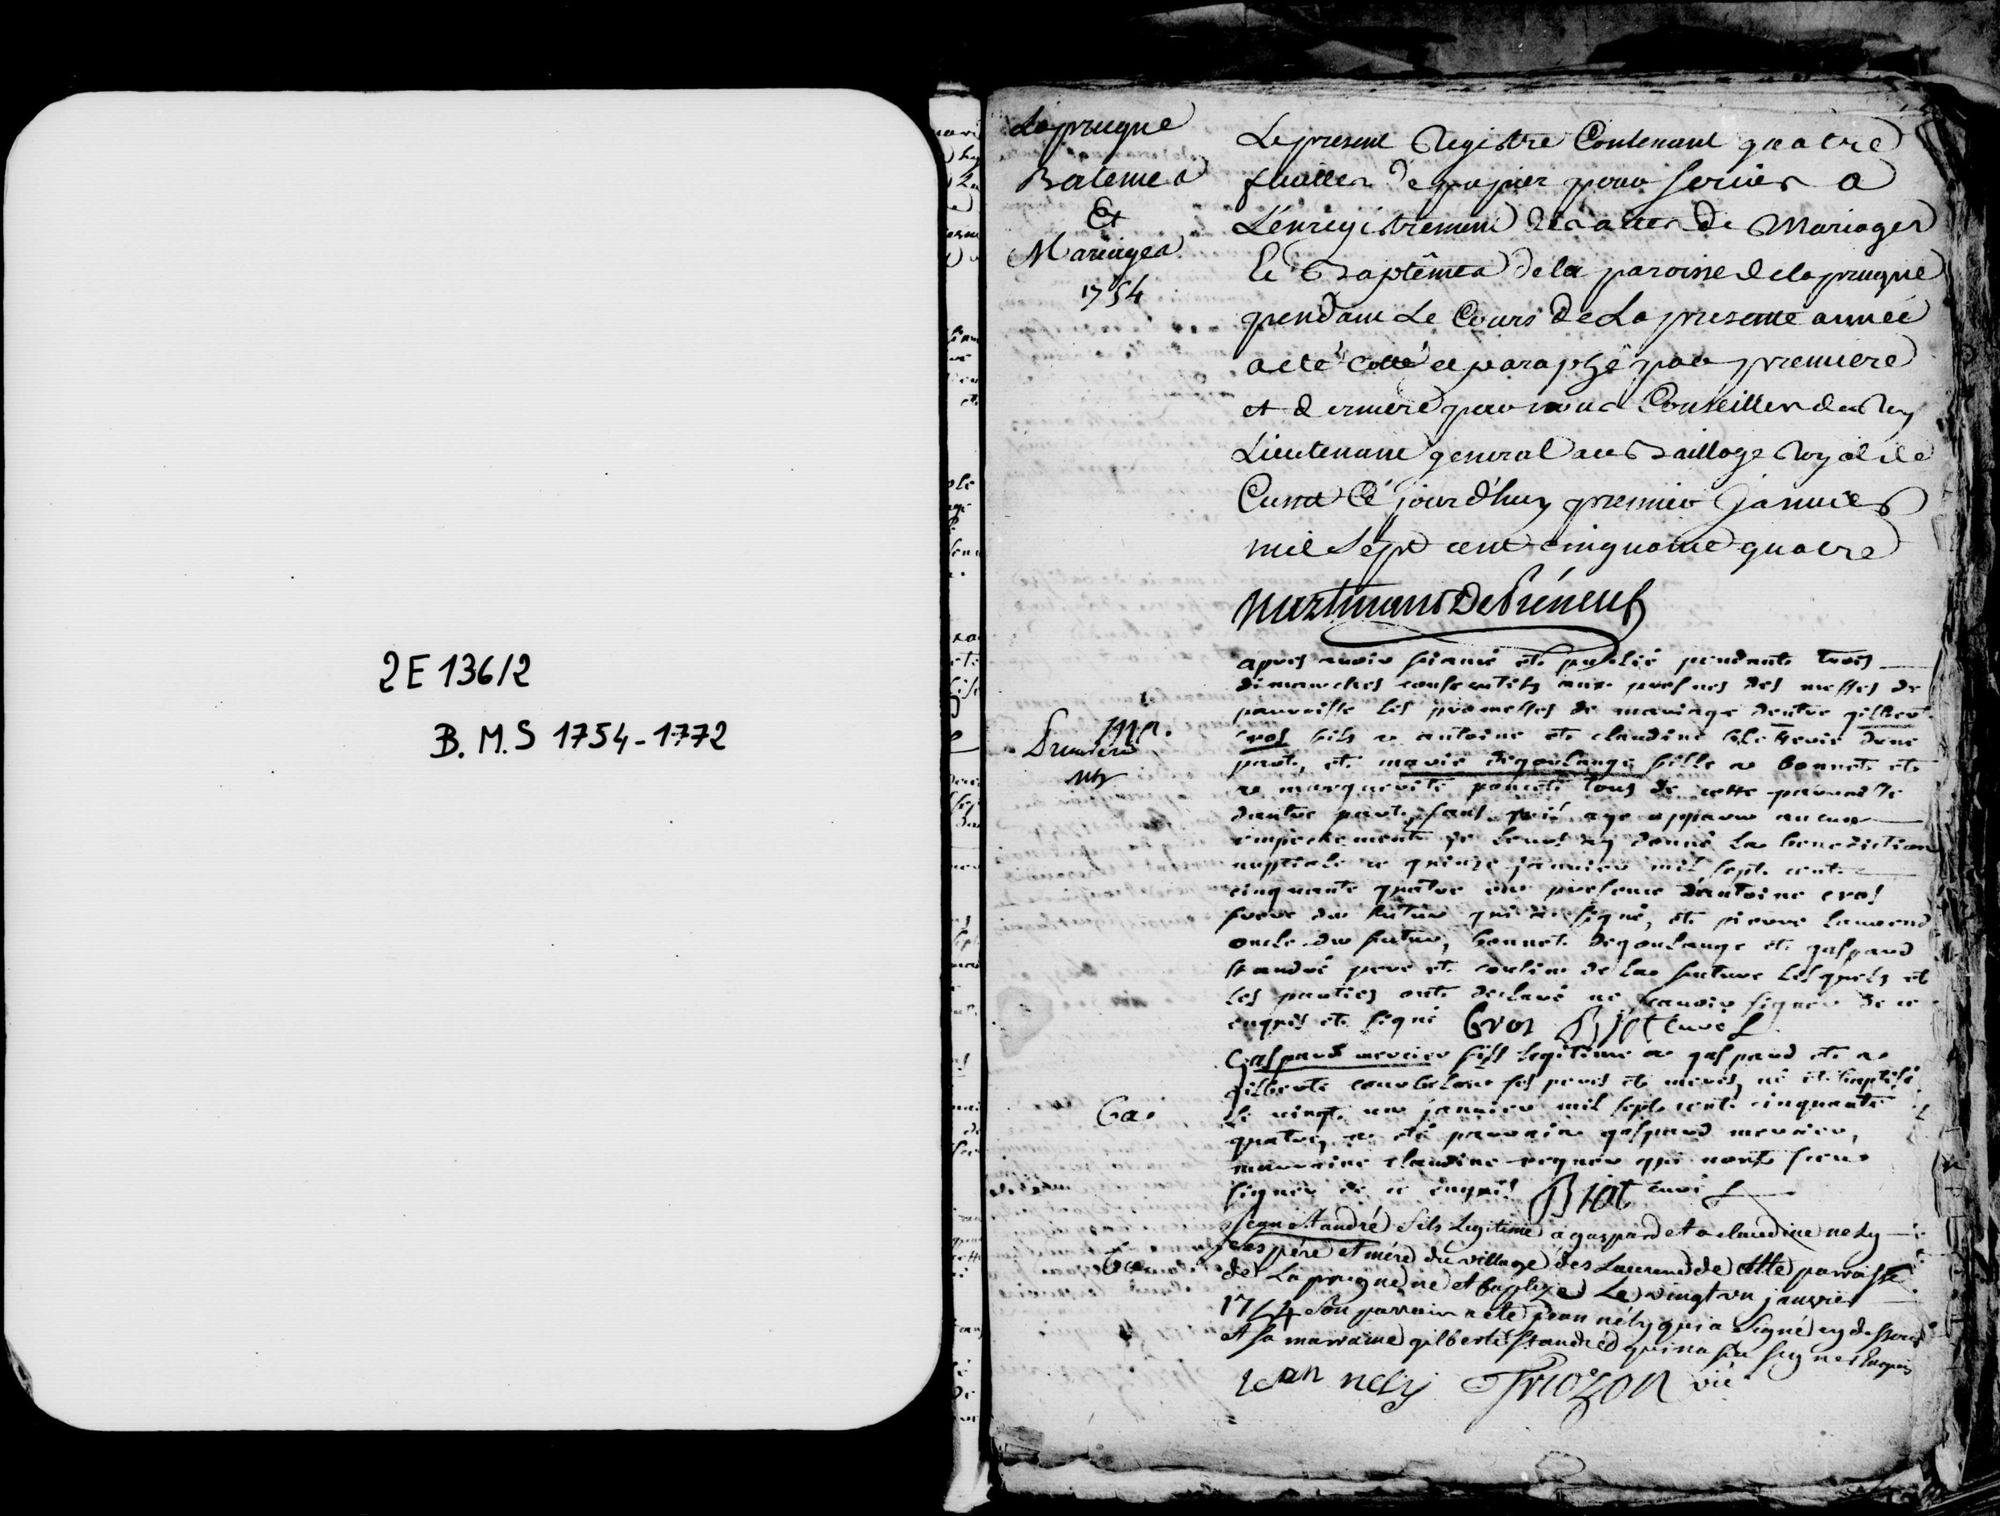 2 E 136/2
B.M.S 1754-1772
Laprugne
Batemes
Et
Mariages
1754
Le present Registre Contenant quatre
feuilles de papier pour servir a
L'enregistrement des actes de Mariages
Et Baptêmes de la paroisse de laprugne
pendant Le Cours de La presente année
a eté cotté et paraphé par premiere
et derniere par nous Conseiller du Roy
Lieutenant general au Bailliage Royal de
Cusset Cé jourd'huy premier janvier
mil sept cent cinquante quatre
apres avoir fiancé et publié pendant trois
dimanches consecutifs aux prosnes des messes de
parroisse les promesses de mariage dentre gilbert
cros fils a antoine et claudine dune
part, et marie degoulange fille a bonnet et
a marguerite poncet tous de cette parroisse
dautre part, sans quil aye apparu aucun
empechement je leurs ay donné la benediction
nuptiale ce quinze janvier mil sept cent
cinquante quatre en presence dantoine cros
frere du futur qui a signé, et pierre laurend
oncle du futur, bonnet degoulange et gaspard
standré pere et cousin de la future lesquels et
les parties ont declaré ne scavoir signer de ce
enquis et signé Cros Biot curé
Ma.
Gaspard mercier fils legitime a gaspard et a
gilberte ses peres et meres, né et baptisé
le vingt un janvier mil sept cent cinquante
quatre, a eté parrain gaspard mercier,
marraine claudine qui nont sceu
signer de ce enquis Biot curé
Ba.
Jean Standré fils Legitime a gaspard et a claudine nely
ses pére et mére du village des Laurend de cette parroisse
de La prugne né et baptizé Le vingt un janvier
1754 Son parrain a eté jean nély qui a Signé cy dessous
et Sa marraine gilberte Standré qui na Sçu Signer Enquis
Ba.
jean nely Friozon vic